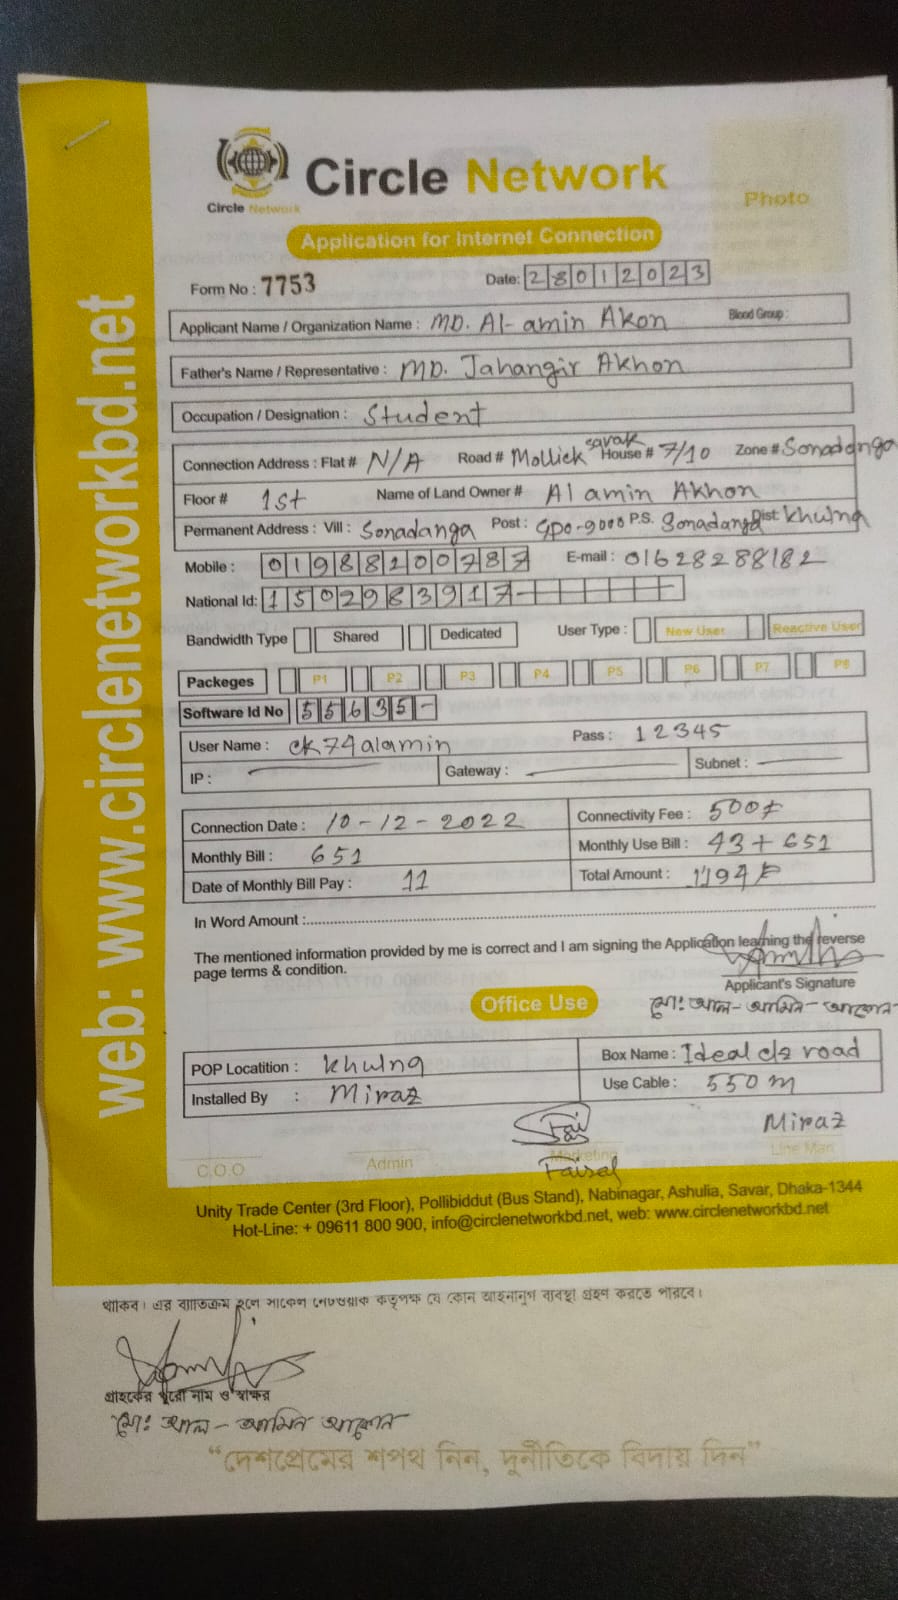 web: www.circlenetworkbd.net
Circle Network
Circle Network
Photo
Application for Internet Connection
Form No : 7753 Date: 28012023
Applicant Name / Organization Name : MD. Al-amin Akon Blood Group :
Father's Name / Representative : MD. Jahangir Akhon
Occupation / Designation : Student
Connection Address : Flat # N/A Road # Mollick sarak House # 7/10 Zone # Sonadanga
Floor # 1st Name of Land Owner # Al amin Akhon
Permanent Address : Vill : Sonadanga Post : GPO-9000 P.S. Sonadanga Dist: Khulna
Mobile : 01988200787 E-mail : 01628288182
National Id: 1502983917-
Bandwidth Type Shared Dedicated User Type : New User Reactive User
Packeges P1 P2 P3 P4 P5 P6 P7 P8
Software Id No 55635-
User Name : ck74alamin Pass : 12345
IP : Gateway : Subnet :
Connection Date : 10-12-2022 Connectivity Fee : 500/
Monthly Bill : 651 Monthly Use Bill : 43 + 651
Date of Monthly Bill Pay : 11 Total Amount : 1194/
In Word Amount :
The mentioned information provided by me is correct and I am signing the Application learning the reverse
page terms & condition.
Applicant's Signature
মো: আল-আমিন-আকোন
Office Use
POP Locatition : Khulna Box Name : Ideal clg road
Installed By : Miraz Use Cable : 550 m
Miraz
C.O.O Admin Marketing Line Man
Faisal
Unity Trade Center (3rd Floor), Pollibiddut (Bus Stand), Nabinagar, Ashulia, Savar, Dhaka-1344
Hot-Line: + 09611 800 900, info@circlenetworkbd.net, web: www.circlenetworkbd.net
থাকিব। এর ব্যতিক্রম হলে সার্কেল নেটওয়ার্ক কর্তৃপক্ষ যে কোন আইনানুগ ব্যবস্থা গ্রহণ করতে পারবে।
গ্রাহকের পুরো নাম ও স্বাক্ষর
মো: আল-আমিন আকোন
“দেশপ্রেমের শপথ নিন, দুর্নীতিকে বিদায় দিন”